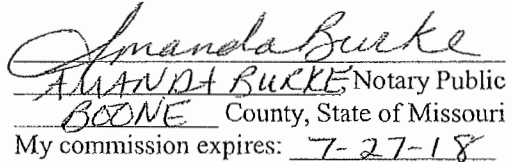 Amanda Burke
AMANDA BURKE Notary Public
BOONE County, State of Missouri
My commission expires: 7-27-18